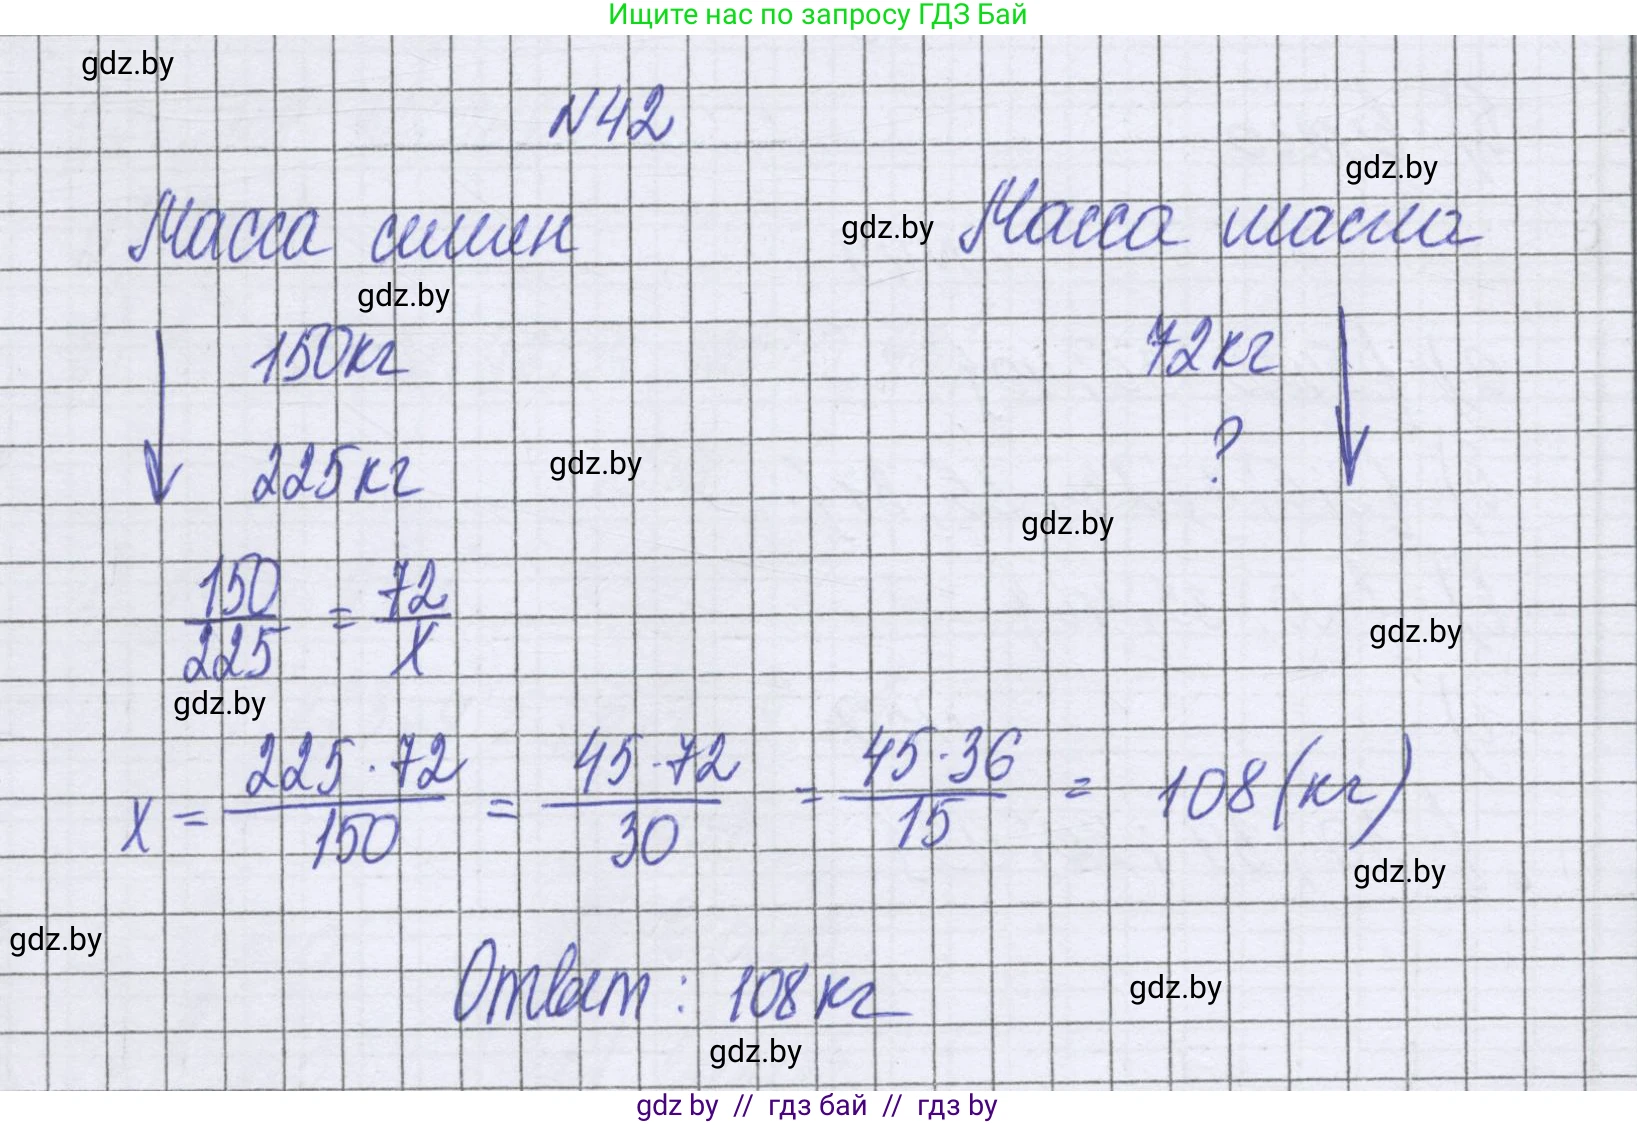 Ищите нас по запросу ГДЗ Бай
gdz.by
№42
gdz.by
Масса семян gdz.by Масса масла
gdz.by
150кг 72кг
225кг gdz.by ?
gdz.by
150/225 = 72/x
gdz.by
gdz.by
x = 225·72/150 = 45·72/30 = 45·36/15 = 108 (кг)
gdz.by
gdz.by
Ответ: 108 кг gdz.by
gdz.by
gdz by // гдз бай // гдз by